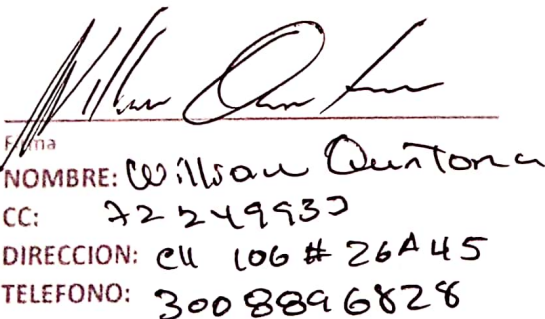 Firma
NOMBRE: William Quintana
CC: 72249933
DIRECCION: Cll 106 # 26A45
TELEFONO: 3008896828